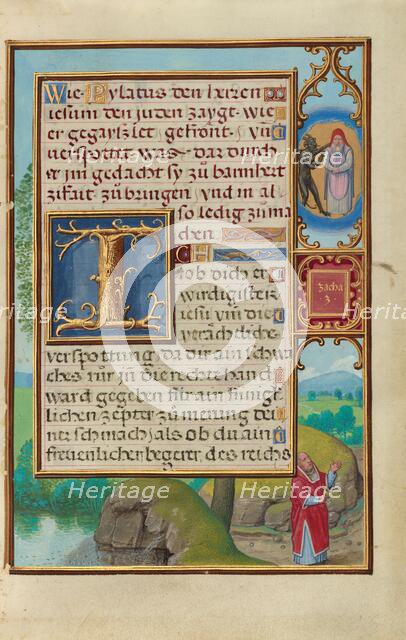 Wie Pylatus den herren
iesum den juden zaygt. wie
er gegaisslet, gekront, vn
verspottet was dar durch
er im gedacht sy zu barmhert
zikait zu bringen vnd in al
so ledig zu ma
chen
I
ch
lob dich er
wirdigister
iesu vm die
verächtliche
verspottung, da dir ain schwa
ches rör in die rechte hand
ward gegeben für ain künig
lichen zepter zu merung dei
ner schmach, als ob du ain
freuenlicher begerer, des reichs
zacha
3
Heritage
Heritage
Heritage
Heritage
Heritage
Heritage